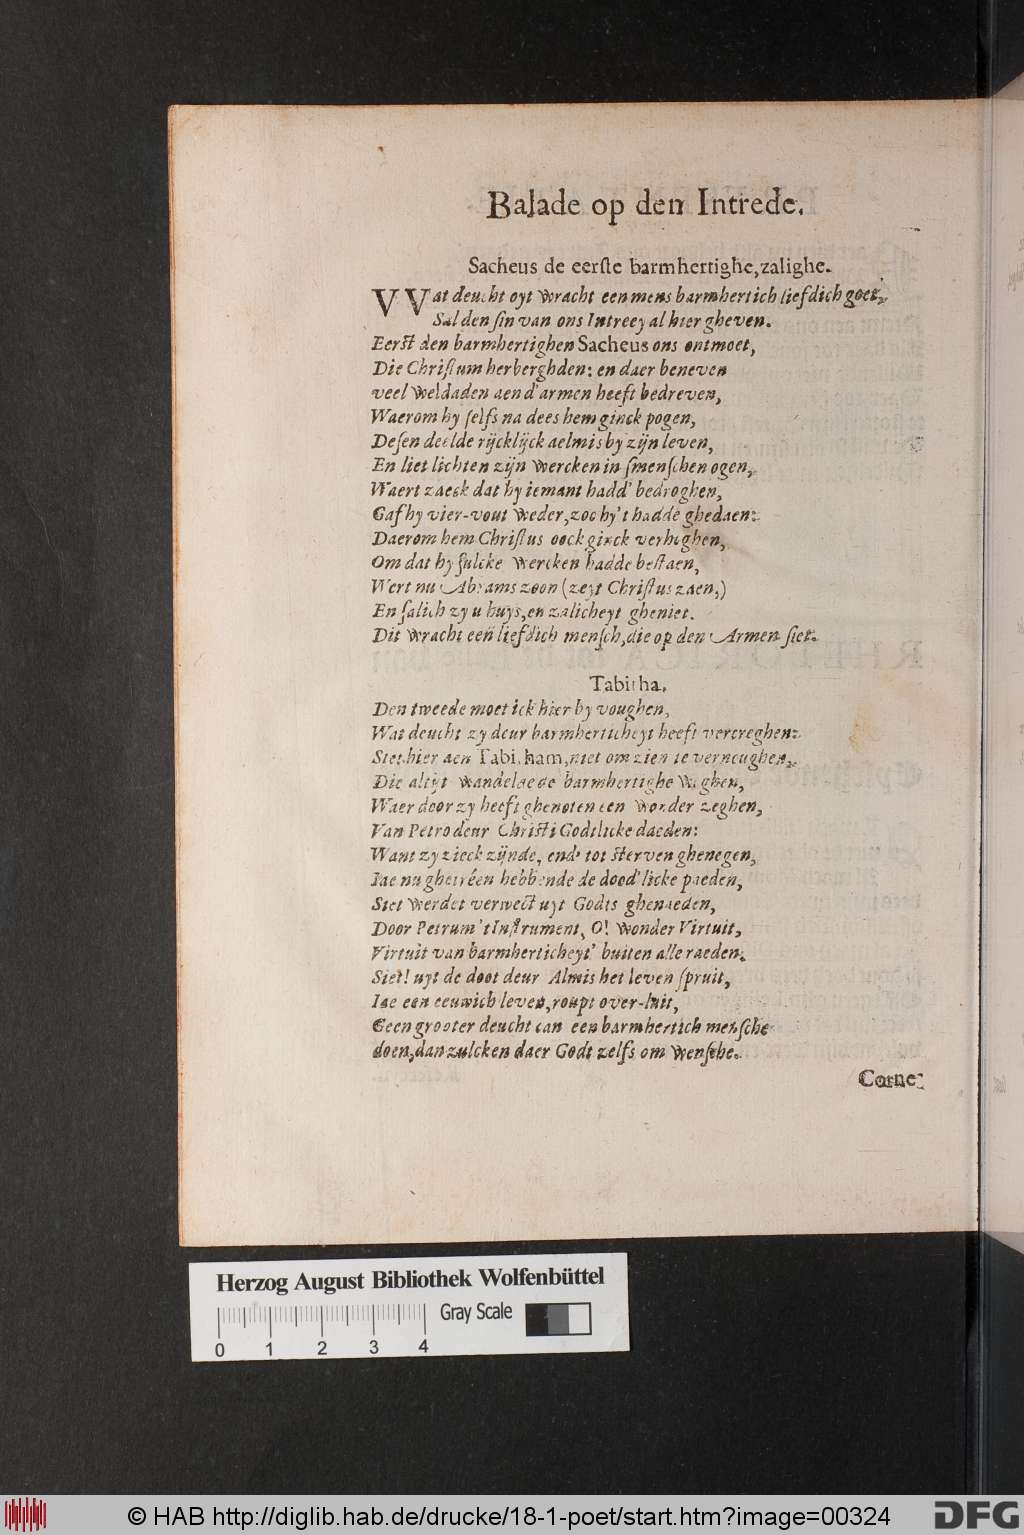 Balade op den Intrede.
Sacheus de eerſte barmhertighe, zalighe.
VVat deucht oyt wracht een mens barmhertich liefdich goet,
Sal den ſin van ons Intreey al hier gheven.
Eerſt den barmhertighen Sacheus ons ontmoet,
Die Chriſtum herberghden: en daer beneven
veel weldaden aen d'armen heeft bedreven,
Waerom hy ſelfs na dees hem ginck pogen,
Deſen deelde rijcklijck aelmis by zijn leven,
En liet lichten zijn wercken in ſmenſchen ogen,
Waert zaeck dat hy iemant hadd' bedroghen,
Gaf hy vier-vout weder, zoo hy't hadde ghedaen:
Daerom hem Chriſtus oock ginck verhoghen,
Om dat hy ſulcke wercken hadde beſtaen,
Wert nu Abrams zoon (zeyt Chriſtus zaen,)
En ſalich zy u huys, en zalicheyt gheniet.
Dit wracht een liefdich menſch, die op den Armen ſiet.
Tabitha.
Den tweede moet ick hier by voughen,
Wat deucht zy deur barmherticheyt heeft vercreghen:
Siet hier aen Tabitham, niet om zien te verneughen,
Die altijt wandelde de barmhertighe weghen,
Waer door zy heeft ghenoten een wonder zeghen,
Van Petro deur Chriſti Godtlicke daeden:
Want zy zieck zijnde, ende tot ſterven ghenegen,
Iae nu ghetréen hebbende de dood'licke paeden,
Siet werdet verwect uyt Godts ghenaeden,
Door Petrum 't Inſtrument, O! wonder Virtuit,
Virtuit van barmherticheyt' buiten alle raeden.
Siet! uyt de doot deur Almis het leven ſpruit,
Iae een eeuwich leven, roupt over-luit,
Geen grooter deucht can een barmhertich menſche
doen, dan zulcken daer Godt zelfs om wenſche.
Corne-
Herzog August Bibliothek Wolfenbüttel
Gray Scale
0 1 2 3 4
© HAB http://diglib.hab.de/drucke/18-1-poet/start.htm?image=00324
DFG